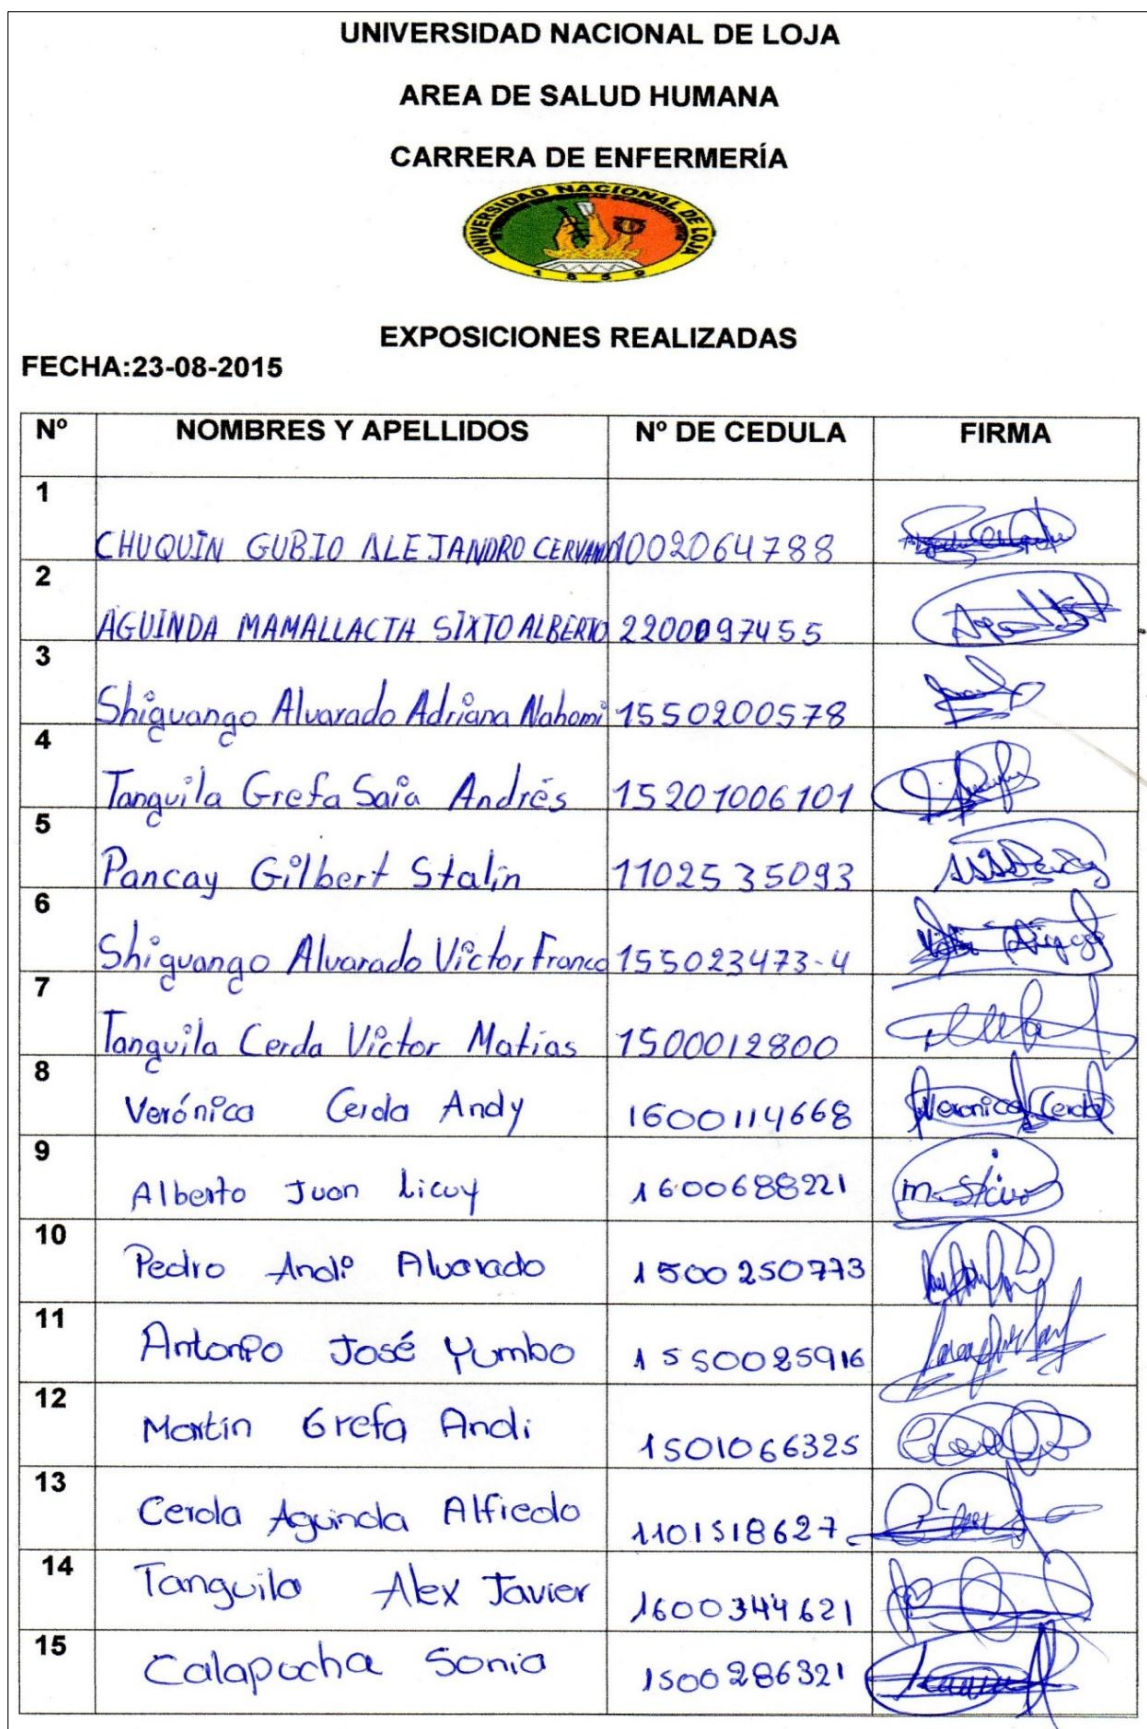 UNIVERSIDAD NACIONAL DE LOJA
AREA DE SALUD HUMANA
CARRERA DE ENFERMERÍA
UNIVERSIDAD NACIONAL DE LOJA
1859
EXPOSICIONES REALIZADAS
FECHA:23-08-2015
Nº NOMBRES Y APELLIDOS Nº DE CEDULA FIRMA
1 CHUQUIN GUBIO ALEJANDRO 1002064788
2 AGUINDA MAMALLACTA SIXTO ALBERTO 2200097455
3 Shiguango Alvarado Adriana Nahomi 1550200578
4 Tanguila Grefa Saia Andrés 15201006101
5 Pancay Gilbert Stalin 1102535093
6 Shiguango Alvarado Victor Franco 155023473-4
7 Tanguila Cerda Victor Matias 1500012800
8 Verónica Cerda Andy 1600114668 Veronica Cerda
9 Alberto Juan Licuy 1600688221
10 Pedro Andi Alvarado 1500250773
11 Antonio José Yumbo 1550025916
12 Martín Grefa Andi 1501066325
13 Cerda Aguinda Alfredo 1101518627
14 Tanguila Alex Javier 1600344621
15 Calapucha Sonia 1500286321